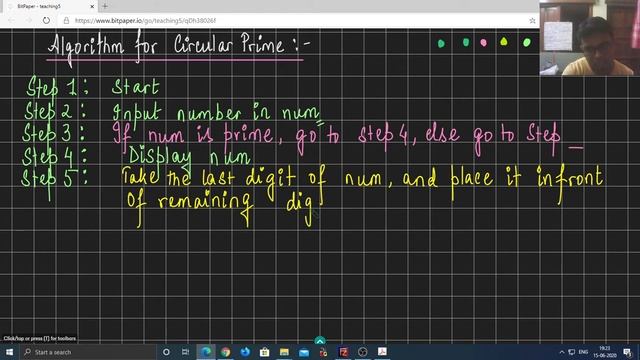 BitPaper - teaching5
https://www.bitpaper.io/go/teaching5/qDh38026f
Algorithm for Circular Prime :-
Step 1 : Start
Step 2 : Input number in num
Step 3 : If num is prime, go to step 4, else go to Step _
Step 4 : Display num
Step 5 : Take the last digit of num, and place it infront
of remaining dig
Click/tap or press [T] for toolbars
Type here to search
ENG
19:23
15-06-2020